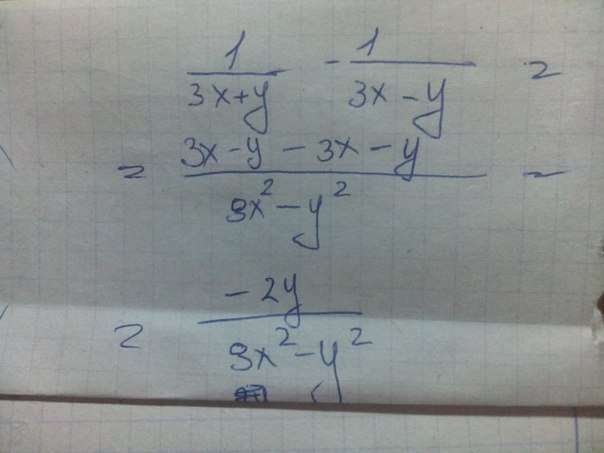 1/(3x+y) - 1/(3x-y) =
= (3x-y-3x-y)/(9x²-y²) =
= (-2y)/(9x²-y²)